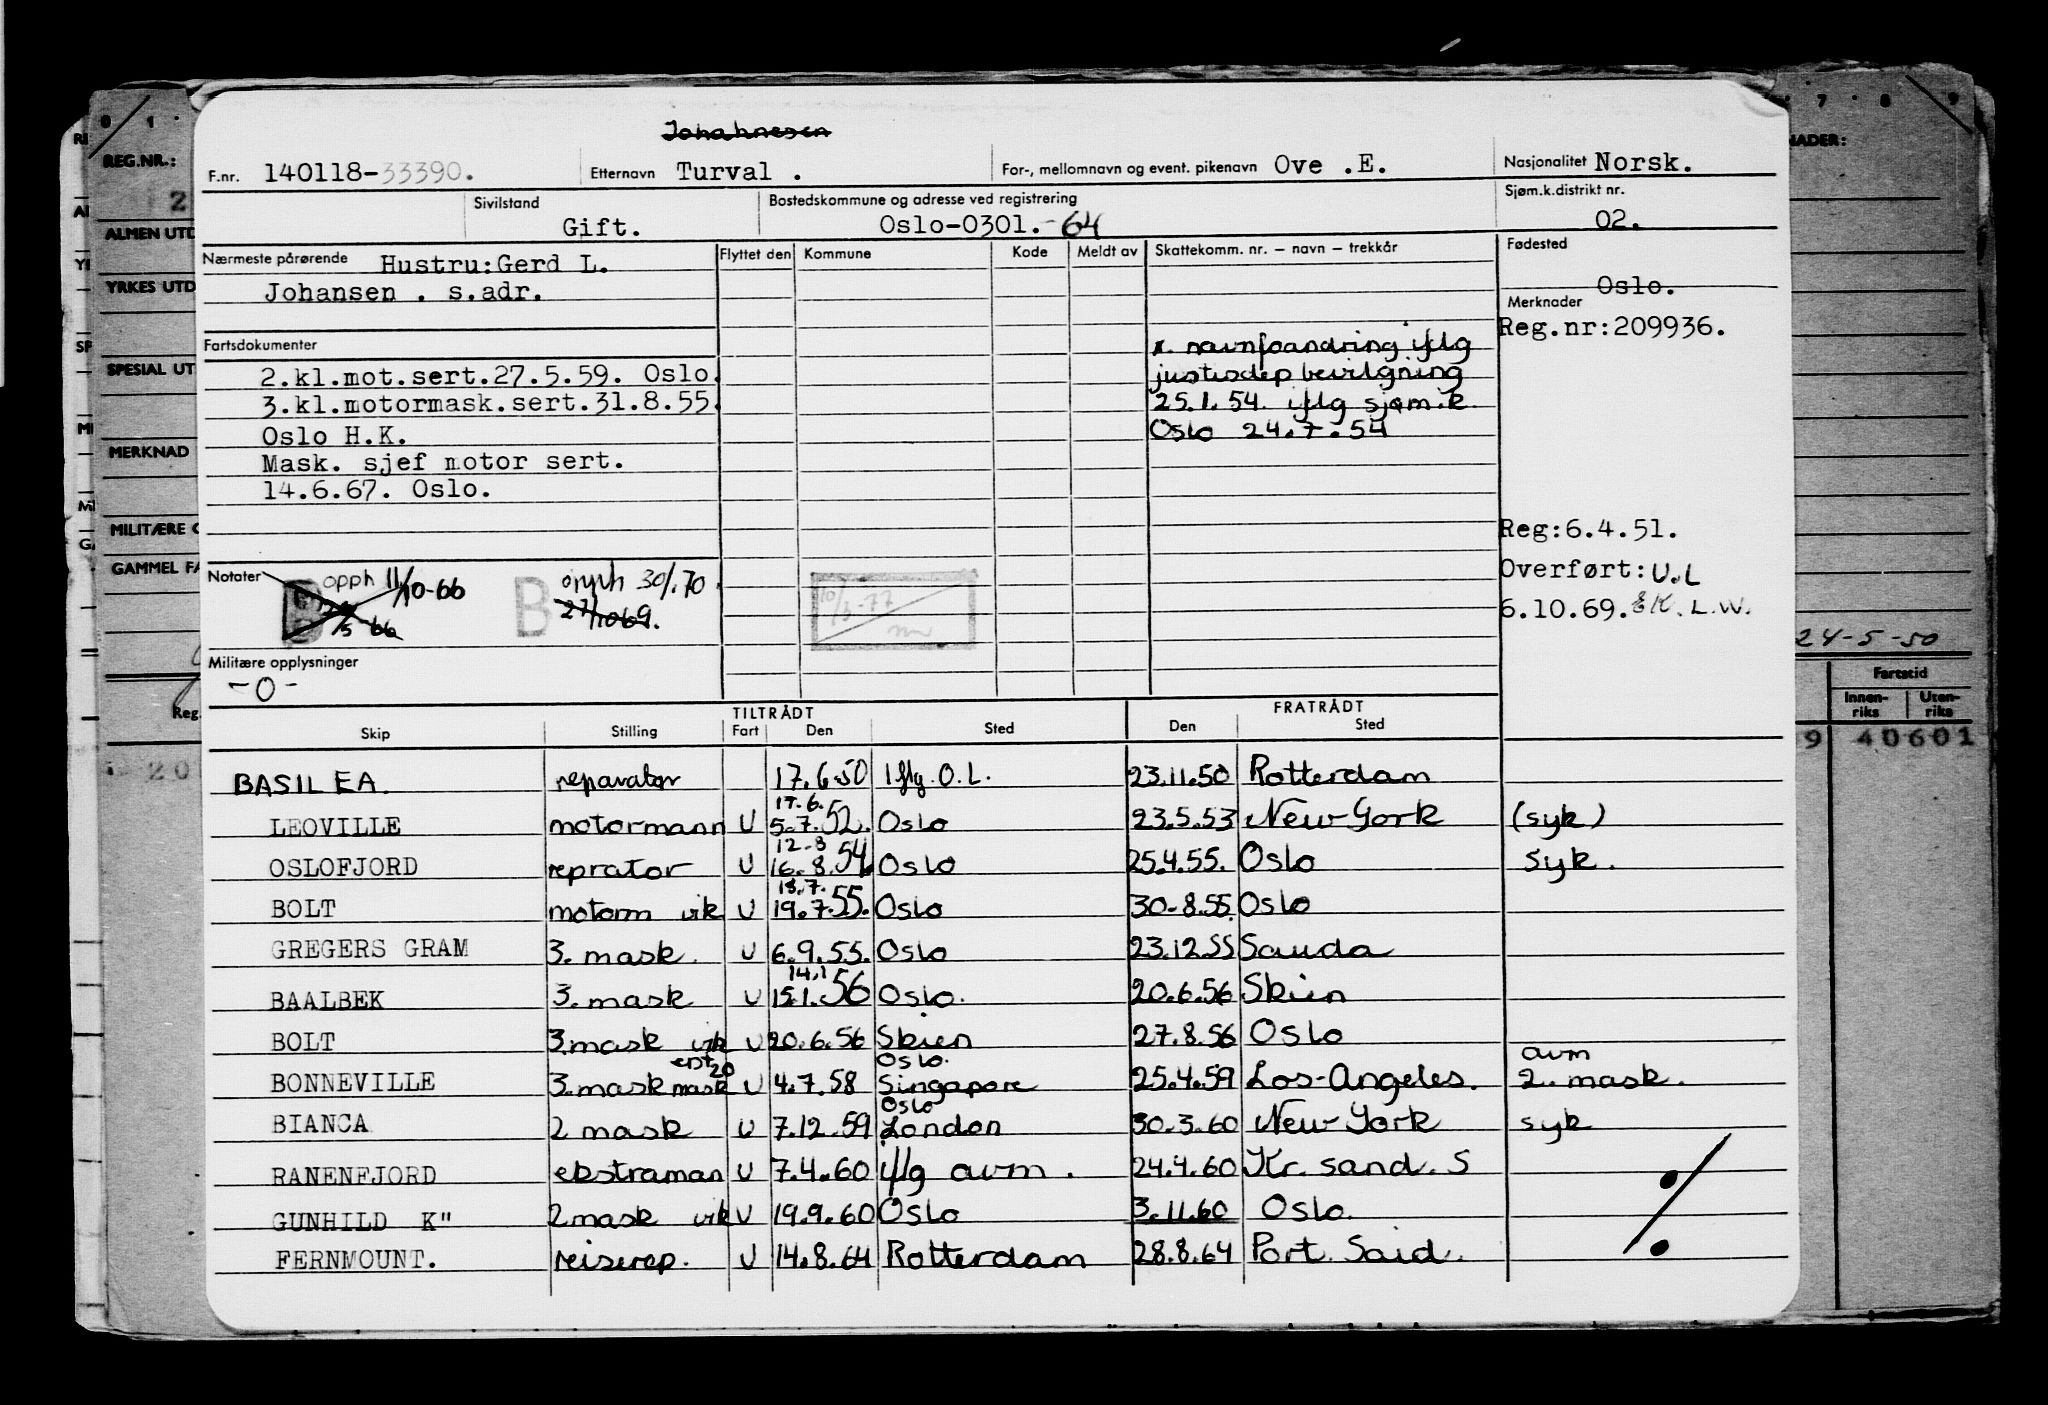 Johahnesen
F.nr. 140118-33390. Etternavn Turval . For-, mellomnavn og event. pikenavn Ove .E. Nasjonalitet Norsk.
Sivilstand Gift. Bostedskommune og adresse ved registrering Oslo-0301.-64 Sjøm.k.distrikt nr. 02.
Nærmeste pårørende Hustru:Gerd L. Flyttet den Kommune Kode Meldt av Skattekomm. nr. – navn – trekkår Fødested
Johansen . s.adr. Oslo.
Merknader
Reg.nr:209936.
Fartsdokumenter x. navnfoandring iflg
2.kl.mot.sert.27.5.59. Oslo. justisdep bevilgning
3.kl.motormask.sert.31.8.55. 25.1.54. iflg sjøm.k.
Oslo H.K. Oslo 24.7.54
Mask. sjef motor sert.
14.6.67. Oslo.
Reg:6.4.51.
Overført: U.L
6.10.69. L.W.
Notater opph 11/10-66 B opph 30/1.70
5 66 27/10 69. 10/3-77
Militære opplysninger
-0-
TILTRÅDT FRATRÅDT
Skip Stilling Fart Den Sted Den Sted
BASILEA. reparatør 17.6.50 Iflg. O.L. 23.11.50 Rotterdam
17.6.
LEOVILLE motormann U 5.7.52. Oslo 23.5.53 New York (syk)
12.8
OSLOFJORD reprator U 16.8.54 Oslo 25.4.55. Oslo syk.
18.7.
BOLT motorm vik U 19.7.55. Oslo 30-8.55. Oslo
GREGERS GRAM 3. mask. U 6.9.55. Oslo 23.12.55 Sauda
14.1
BAALBEK 3. mask U 15.1.56 Oslo. 20.6.56 Skien
BOLT 3.mask vik U 20.6.56 Skien 27.8.56 Oslo
erst 20 Oslo. avm
BONNEVILLE 3.mask mask U 4.7.58 Singapore 25.4.59 Los-Angeles. 2. mask.
Oslo
BIANCA 2 mask U 7.12.59 London 30.3.60 New York syk
RANENFJORD ekstraman U 7.4.60 iflg avm. 24.4.60 Kr. sand. S
GUNHILD K" 2mask vik U 19.9.60 Oslo 3.11.60 Oslo.
FERNMOUNT. reiserep. U 14.8.64 Rotterdam 28.8.64 Port Said.
0 1
REG.NR.:
2
ALMEN UTD
YRKES UTD
SPESIAL UT
MERKNAD
MILITÆRE
GAMMEL FA
Reg.
20
7 8 9
NADER:
24-5-50
Fartstid
Innenriks Utenriks
9 40601